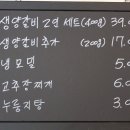 생양갈비 2인 세트(400g) 39.0
생양갈비 추가 (200g) 17.0
냉 모밀 5.0
고추장찌개 6.0
누룽지탕 3.0